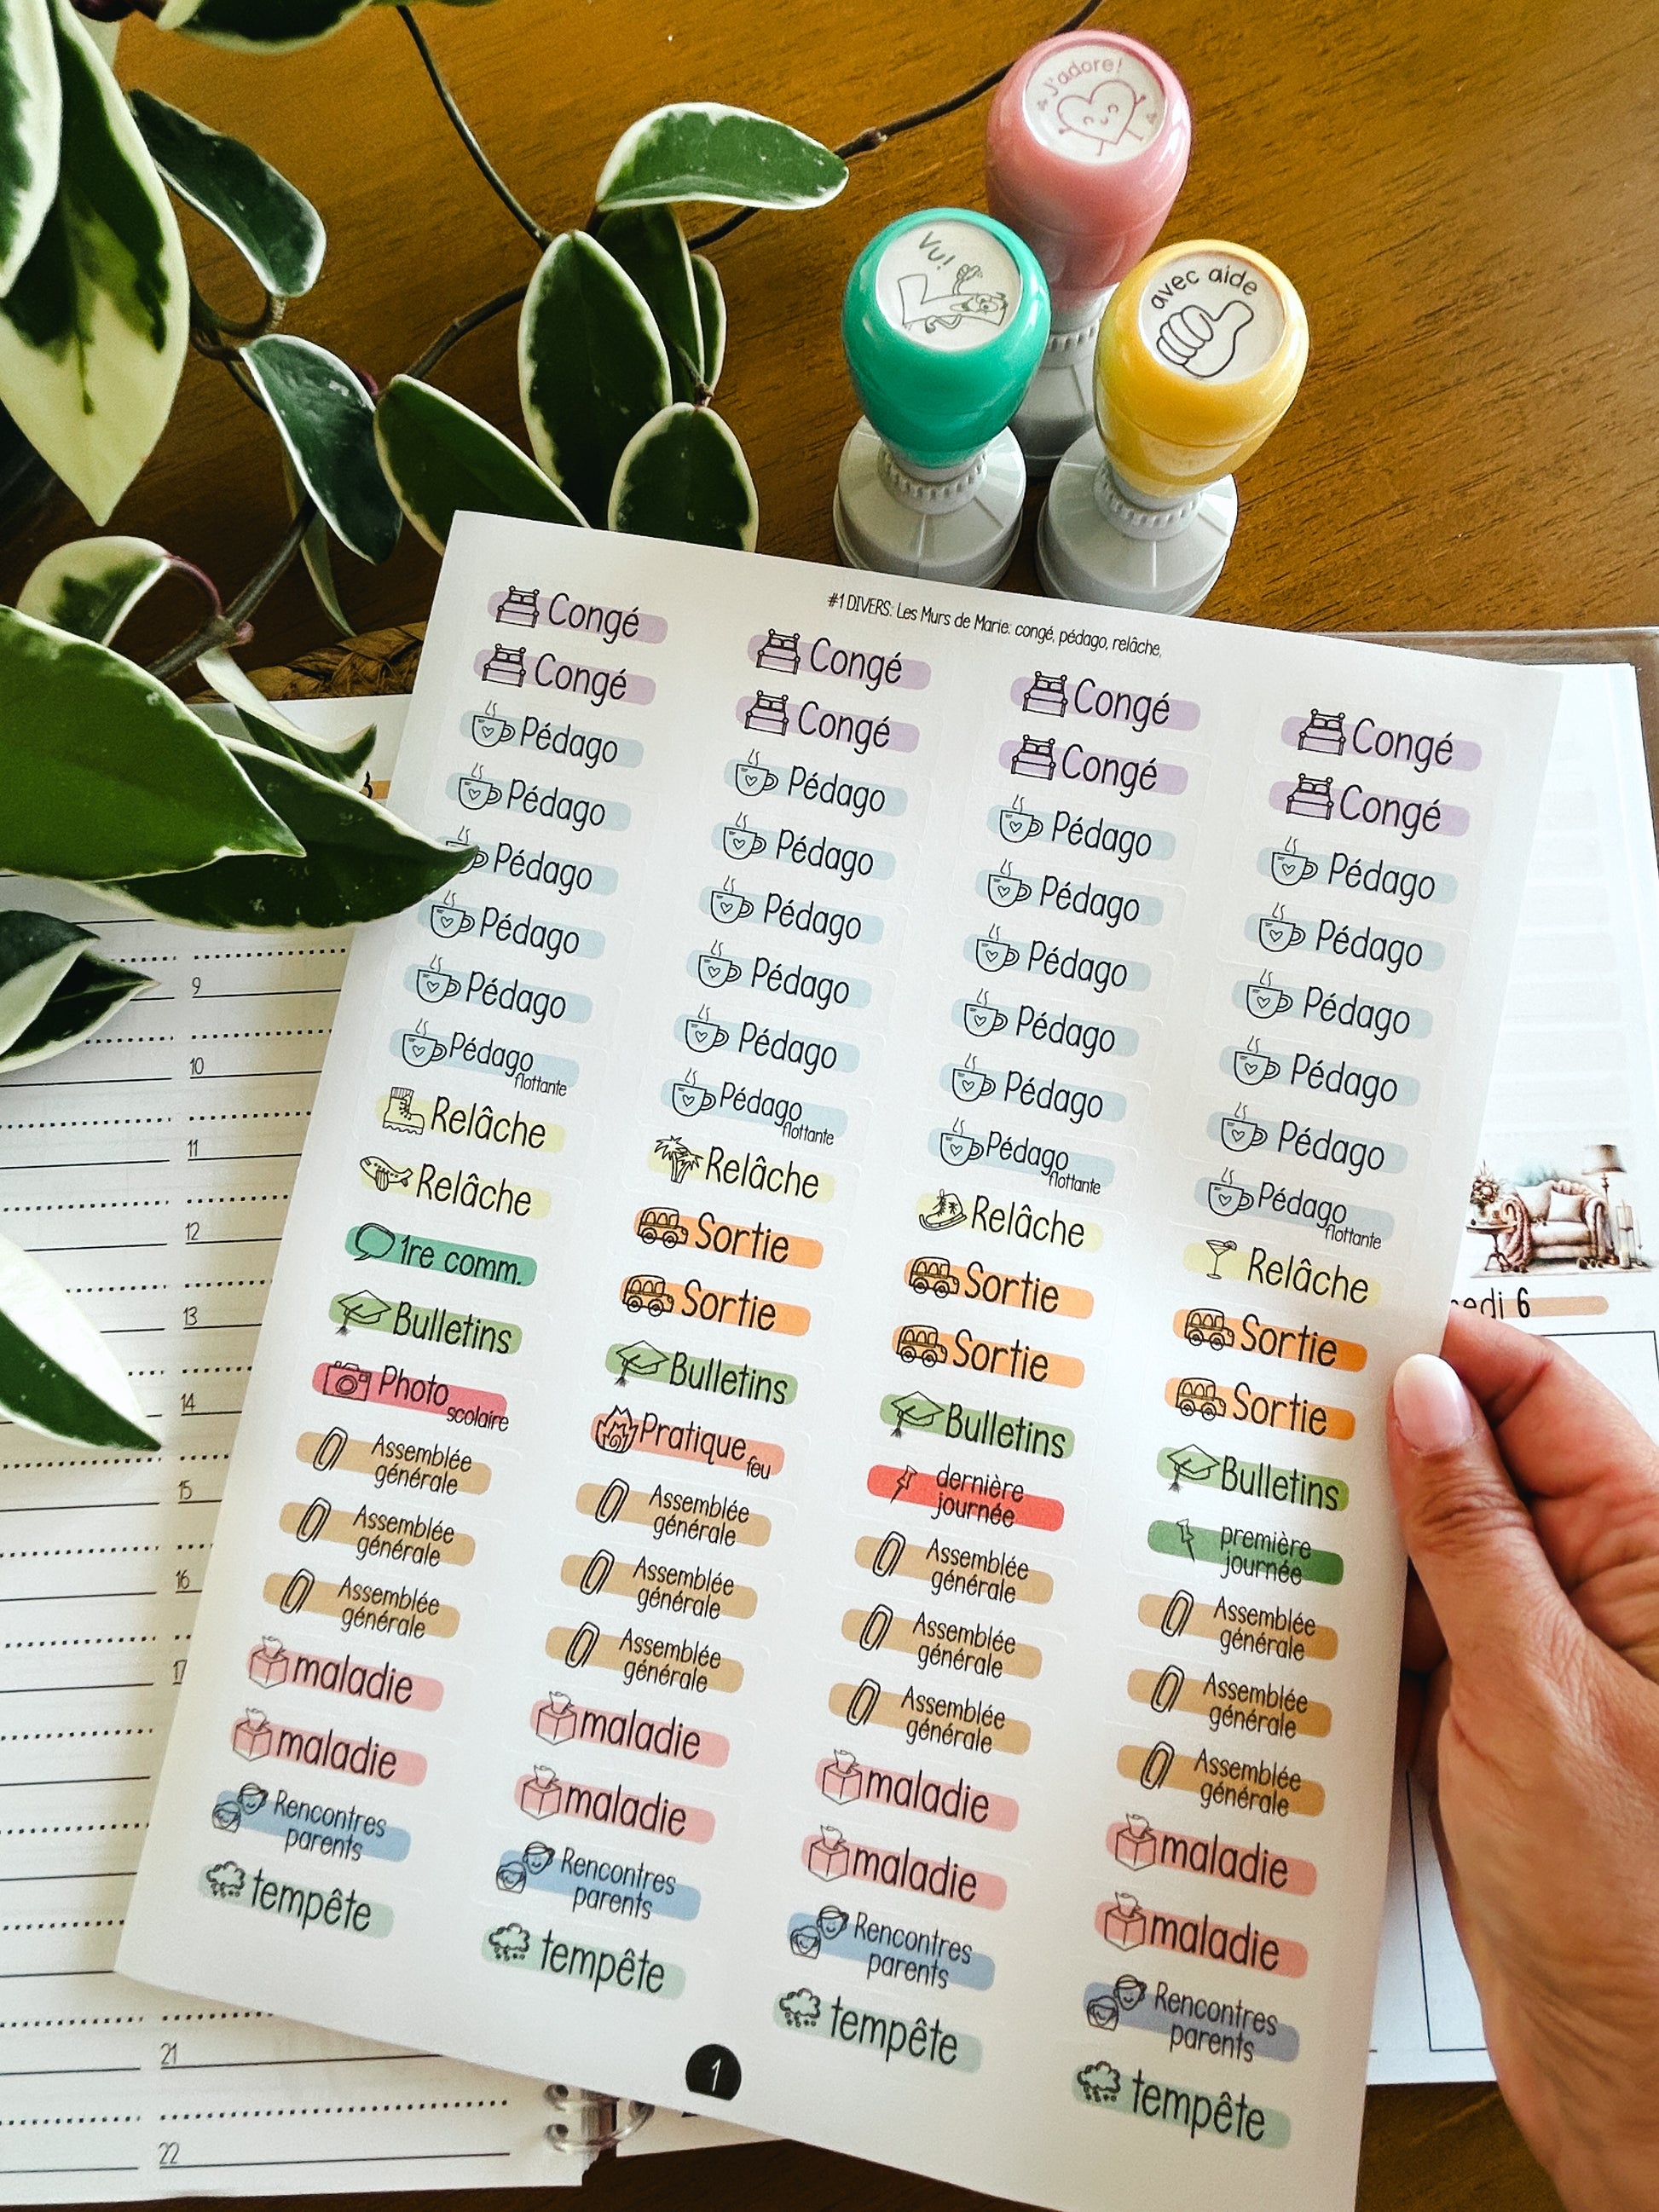 J'adore!
Vu!
avec aide
#1 DIVERS: Les Murs de Marie: congé, pédago, relâche,
Congé
Congé
Pédago
Pédago
Pédago
Pédago
Pédago
Pédago
flottante
Relâche
Relâche
1re comm.
Bulletins
Photo
scolaire
Assemblée
générale
Assemblée
générale
Assemblée
générale
maladie
maladie
Rencontres
parents
tempête
Congé
Congé
Pédago
Pédago
Pédago
Pédago
Pédago
Pédago
flottante
Relâche
Sortie
Sortie
Bulletins
Pratique
feu
Assemblée
générale
Assemblée
générale
Assemblée
générale
maladie
maladie
Rencontres
parents
tempête
Congé
Congé
Pédago
Pédago
Pédago
Pédago
Pédago
Pédago
flottante
Relâche
Sortie
Sortie
Bulletins
dernière
journée
Assemblée
générale
Assemblée
générale
Assemblée
générale
maladie
maladie
Rencontres
parents
tempête
Congé
Congé
Pédago
Pédago
Pédago
Pédago
Pédago
Pédago
flottante
Relâche
Sortie
Sortie
Bulletins
première
journée
Assemblée
générale
Assemblée
générale
Assemblée
générale
maladie
maladie
Rencontres
parents
tempête
1
9
10
11
12
13
14
15
16
17
21
22
edi 6